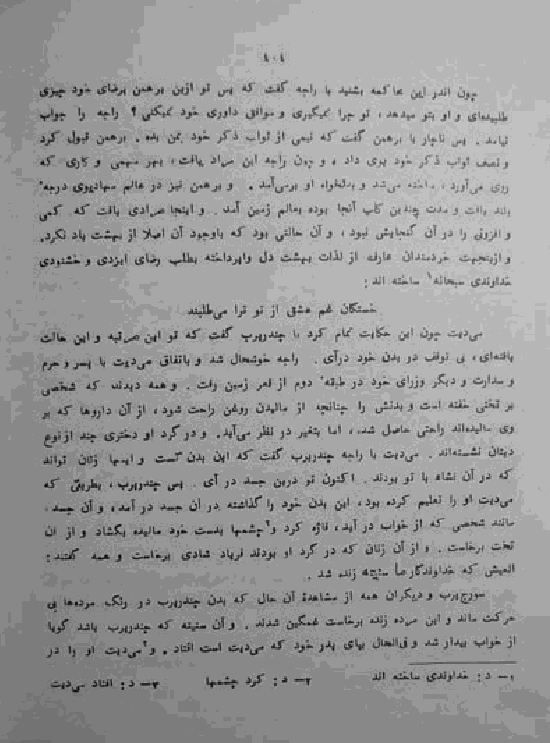 ۱۰۱
چون اندر این محاکمه بشنید با راجه گفت که پس تو ازین برهمن برضای خود چیزی
طلبیده‌ای و او بتو میدهد، تو چرا نمیگیری و موافق داوری خود نمیکنی؟ راجه را جواب
نیامد. پس ناچار با برهمن گفت که نیمی از ثواب ذکر خود بمن بده. برهمن قبول کرد
و نصف ثواب ذکر خود بوی داد، و چون راجه این مراد یافت، بهر مهمی و کاری که
روی می‌آورد، ساخته می‌شد و بدلخواه او برمی‌آمد. و برهمن نیز در عالم درجه
بلند یافت و مدت چندین کلپ آنجا بوده بعالم زمین آمد. و اینجا مرادی یافت که کمی
و افزونی را در آن گنجایش نبود، و آن حالتی بود که باوجود آن اصلا از بهشت یاد نکرد.
و ازینجهت خردمندان عارف از لذات بهشت دل واپرداخته بطلب رضای ایزدی و خشنودی
خداوندی سبحانه۱ ساخته اند:
خستگان غم عشق از تو ترا می‌طلبند
می‌دیت چون این حکایت تمام کرد با چندرپرب گفت که تو این مرتبه و این حالت
یافته‌ای، بی توقف در بدن خود درآی. راجه خوشحال شد و باتفاق می‌دیت با پسر و حرم
و سدارت و دیگر وزرای خود در طبقه دوم از قعر زمین رفت. و همه دیدند که شخصی
بر تختی خفته است و بدنش را چنانچه از مالیدن روغن راحت شود، از آن داروها که بر
وی مالیده‌اند راحتی حاصل شده، اما بتغیر در نظر می‌آید. و در گرد او دختری چند از نوع
دیتان نشسته‌اند. می‌دیت با راجه چندرپرب گفت که این بدن تست و اینها زنان تواند
که در آن نشاه با تو بودند. اکنون تو درین جسد در آی. پس چندرپرب، بطریقی که
می‌دیت او را تعلیم کرده بود، این بدن خود را گذاشته در آن جسد در آمد، و آن جسد،
مانند شخصی که از خواب در آید، فاژه کرد و۲چشمها بدست خود مالیده بگشاد و از آن
تخت برخاست. و از آن زنان که در گرد او بودند فریاد شادی برخاست و همه گفتند:
که خداوندگار ما سنیته زنده شد.
سورج‌پرب و دیگران همه از مشاهدهٔ آن حال که بدن چندرپرب در رنگ مرده‌ها بی
حرکت ماند و این مرده زنده برخاست غمگین شدند. و آن سنیته که چندرپرب باشد گویا
از خواب بیدار شد و فی‌الحال بپای پدر خود که می‌دیت است افتاد. و۳می‌دیت او را در
۱— د: خداوندی ساخته اند ۲— د: کرد چشمها ۳— د: افتاد می‌دیت